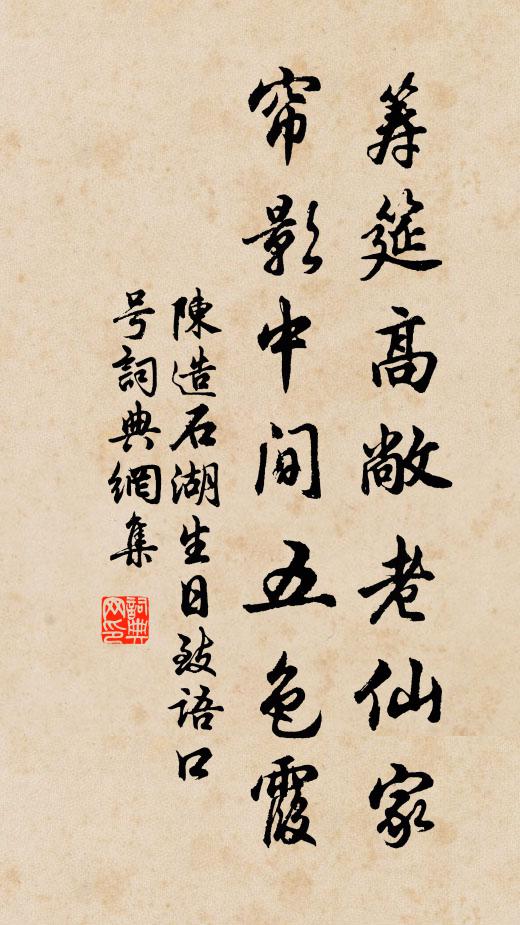 筭筵高敞老仙家
帘影中间五色霞
陳造石湖生日致語口
号詞典網集
詞典
网印